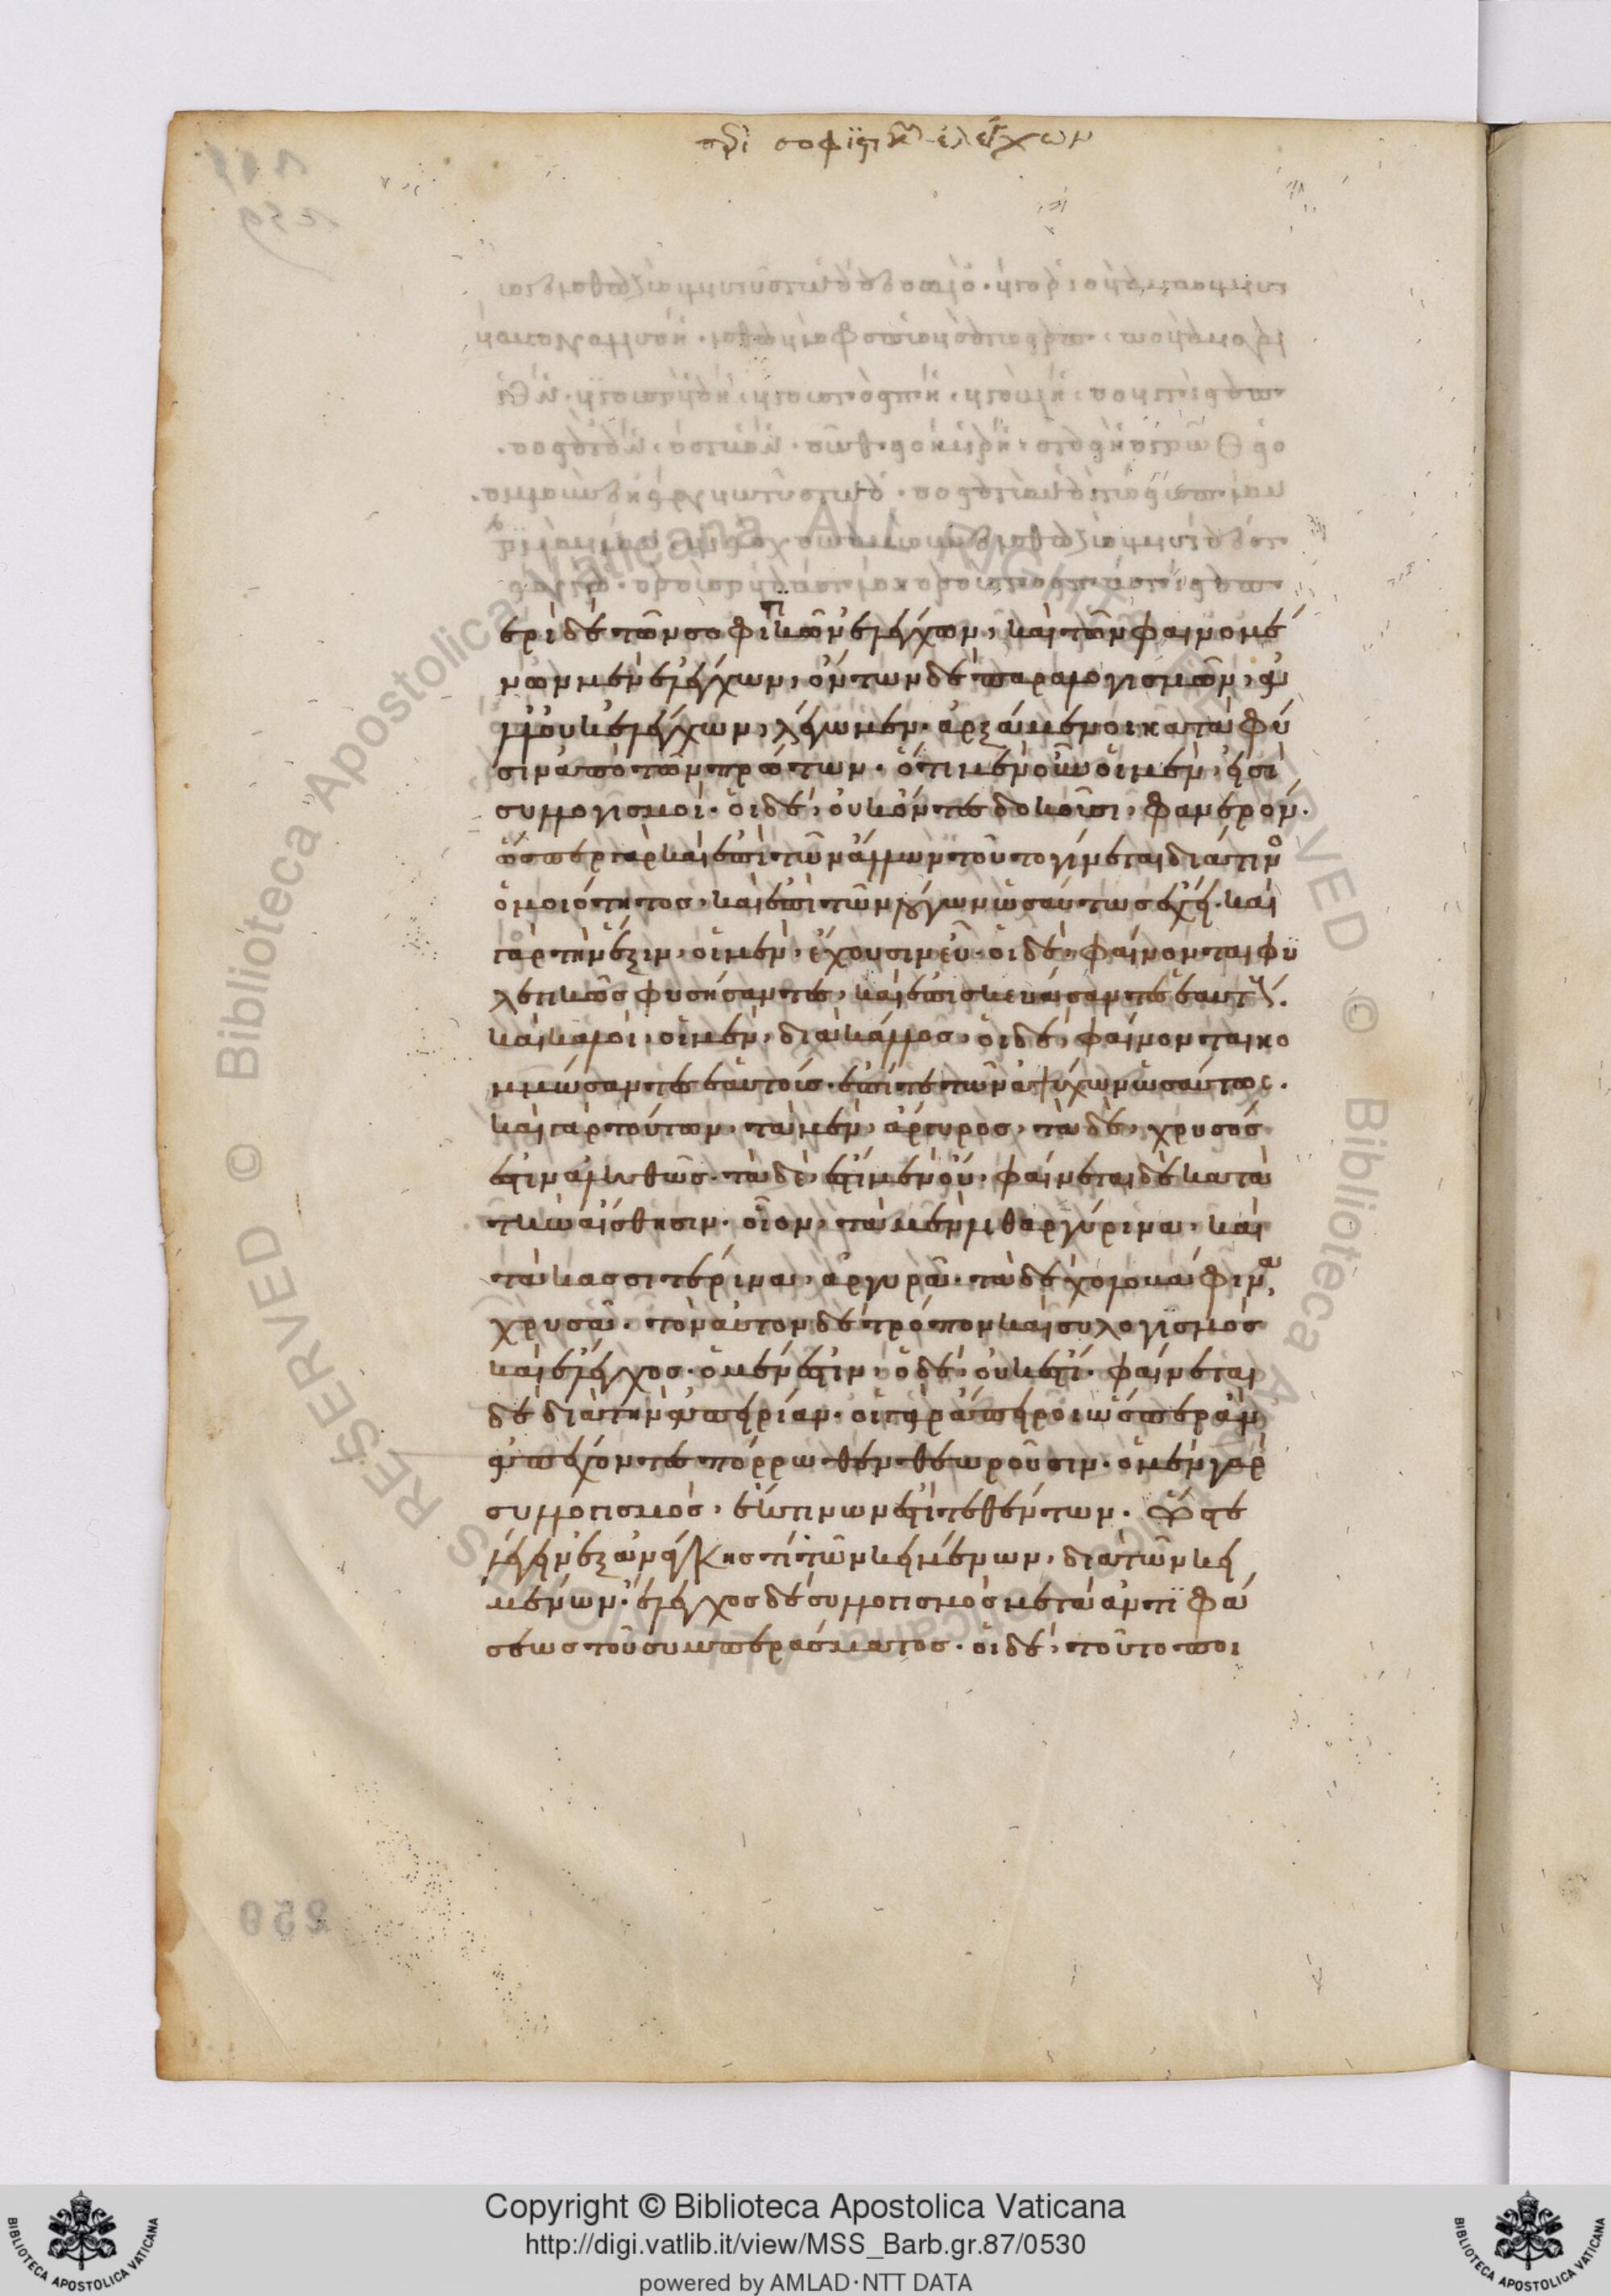 περὶ σοφιστικῶν ἐλέγχων
ερὶ δὲ τῶν σοφιστικῶν ἐλέγχων, καὶ τῶν φαινομέ
νων μὲν ἐλέγχων, ὄντων δὲ παραλογισμῶν, ἀλ
λ' οὐκ ἐλέγχων, λέγωμεν. ἀρξάμενοι κατὰ φύ
σιν ἀπὸ τῶν πρώτων. ὅτι μὲν οὖν οἱ μὲν, εἰσὶ
συλλογισμοί. οἱ δέ, οὐκ ὄντες δοκοῦσι, φανερόν.
ὥσπερ γὰρ καὶ ἐπὶ τῶν ἄλλων τοῦτο γίνεται διά τινος
ὁμοιότητος, καὶ ἐπὶ τῶν λόγων ὡσαύτως ἔχει. καὶ
γὰρ τὴν ἕξιν, οἱ μὲν, ἔχουσιν εὖ. οἱ δὲ, φαίνονται φυ
λετικῶς φυσήσαντες, καὶ ἐπισκευάσαντες ἑαυτούς.
καὶ καλοί, οἱ μὲν, διὰ κάλλος, οἱ δέ, φαίνονται κο
μμώσαντες ἑαυτούς. ἐπί τε τῶν ἀψύχων ὡσαύτως.
καὶ γὰρ τούτων, τὰ μὲν, ἄργυρος, τὰ δὲ, χρυσός
ἐστιν ἀληθῶς. τὰ δὲ, ἔστι μὲν οὔ, φαίνεται δὲ κατὰ
τὴν αἴσθησιν. οἷον, τὰ μὲν λιθαργύρινα, καὶ
τὰ κασσιτέρινα, ἀργυρᾶ. τὰ δὲ χολοκάφινα,
χρυσᾶ. τὸν αὐτὸν δὲ τρόπον καὶ συλογισμὸς
καὶ ἔλεγχος. ὁ μὲν ἔστιν, ὁ δέ, οὐκ ἔστι. φαίνεται
δὲ διὰ τὴν ἀπειρίαν. οἱ γὰρ ἄπειροι ὥσπερ ἂν
ἀπέχοντες πόρρωθεν θεωροῦσιν. ὁ μὲν γὰρ
συλλογισμὸς, ἐκ τινων ἐστὶ τεθέντων. ὥστε
λέγειν ἐξ ἀνάγκης τὶ τῶν κειμένων, διὰ τῶν κει
μένων. ἔλεγχος δὲ συλλογισμὸς μετὰ ἀντιφά
σεως τοῦ συμπεράσματος. οἱ δέ, τοῦτο ποι
Copyright © Biblioteca Apostolica Vaticana
http://digi.vatlib.it/view/MSS_Barb.gr.87/0530
powered by AMLAD·NTT DATA